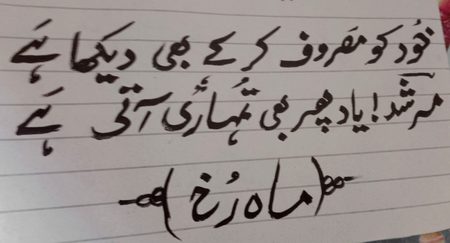 خُود کو مَصروف کر کے بھی دیکھا ہَے
مُرشد! یاد پھر بھی تُمہاری آتی ہَے
(ماہ رُخ)